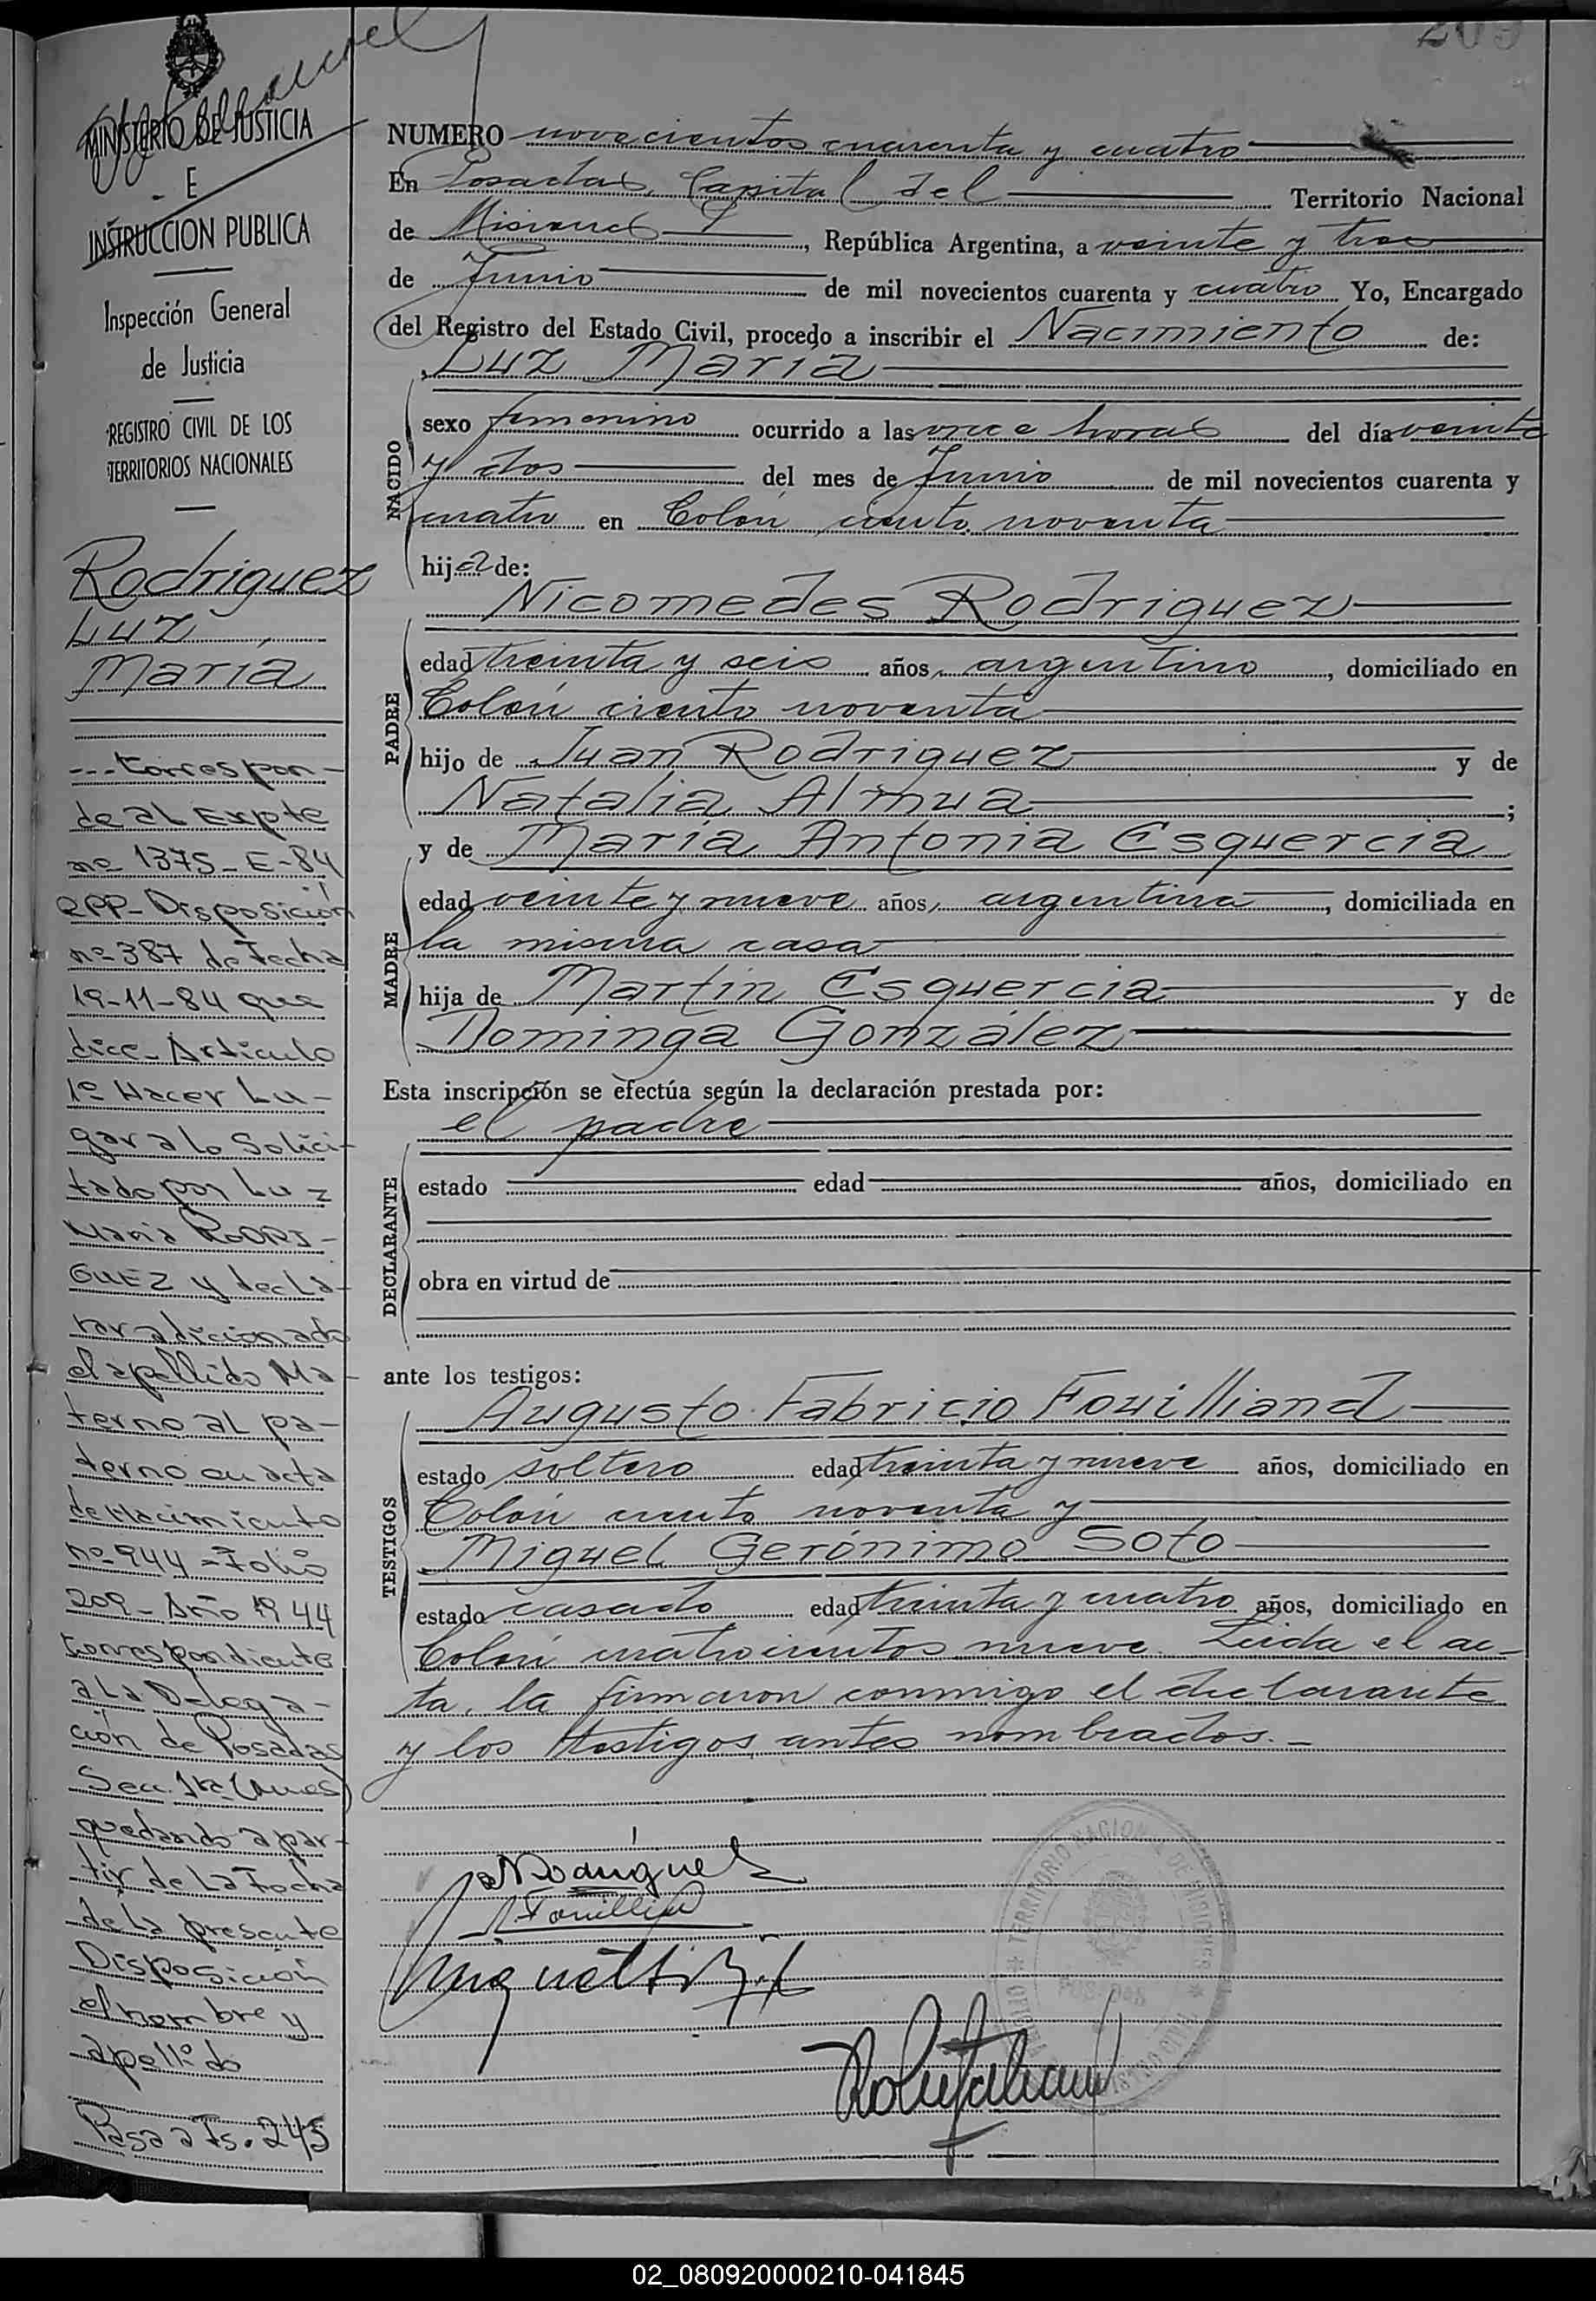 209
MINISTERIO DE JUSTICIA
E
INSTRUCCION PUBLICA
Inspección General
de Justicia
REGISTRO CIVIL DE LOS
TERRITORIOS NACIONALES
Rodriguez
Luz
María
---Correspon-
de al Expte
nº 1375-E-84
RPP-Disposición
nº 387 de Fecha
19-11-84 que
dice-Artículo
1º Hacer Lu-
gar a lo Solici-
tado por Luz
María RODRI-
GUEZ y decla-
rar adicionado
el apellido Ma-
terno al pa-
terno en acta
de Nacimiento
nº 944-Folio
209-Año 1944
Correspondiente
a la Delega-
ción de Posadas
Secc. 1ra (Mnes)
quedando a par-
tir de la Fecha
de la presente
Disposición
el nombre y
apellido
Pasa a Fs. 245
NUMERO novecientos cuarenta y cuatro
En Posadas, Capital del Territorio Nacional
de Misiones, República Argentina, a veinte y tres
de Junio de mil novecientos cuarenta y cuatro Yo, Encargado
del Registro del Estado Civil, procedo a inscribir el Nacimiento de:
Luz María
NACIDO
sexo femenino ocurrido a las once horas del día veinte
y dos del mes de Junio de mil novecientos cuarenta y
cuatro en Colón ciento noventa
hija de:
Nicomedes Rodriguez
PADRE
edad treinta y seis años, argentino, domiciliado en
Colón ciento noventa
hijo de Juan Rodriguez y de
Natalia Almua;
y de María Antonia Esquercia
MADRE
edad veinte y nueve años, argentina, domiciliada en
la misma casa
hija de Martín Esquercia y de
Dominga González
Esta inscripción se efectúa según la declaración prestada por:
el padre
DECLARANTE
estado edad años, domiciliado en
obra en virtud de
ante los testigos:
Augusto Fabricio Fouilliand
TESTIGOS
estado soltero edad treinta y nueve años, domiciliado en
Colón ciento noventa y
Miguel Gerónimo Soto
estado casado edad treinta y cuatro años, domiciliado en
Colón cuatrocientos nueve. Leida el ac-
ta, la firmaron conmigo el declarante
y los testigos antes nombrados.-
NRodriguez
TERRITORIO NACIONAL DE MISIONES
POSADAS
02_080920000210-041845